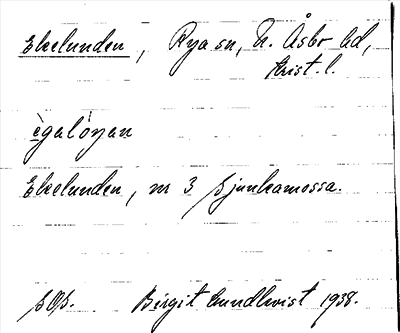 Ekelunden, Rya sn, N. Åsbo hd,
Krist. l.
ègalúnan
Ekelunden, nr 3 Sjunkamossa.
sOs. Birgit Lundkvist 1938.